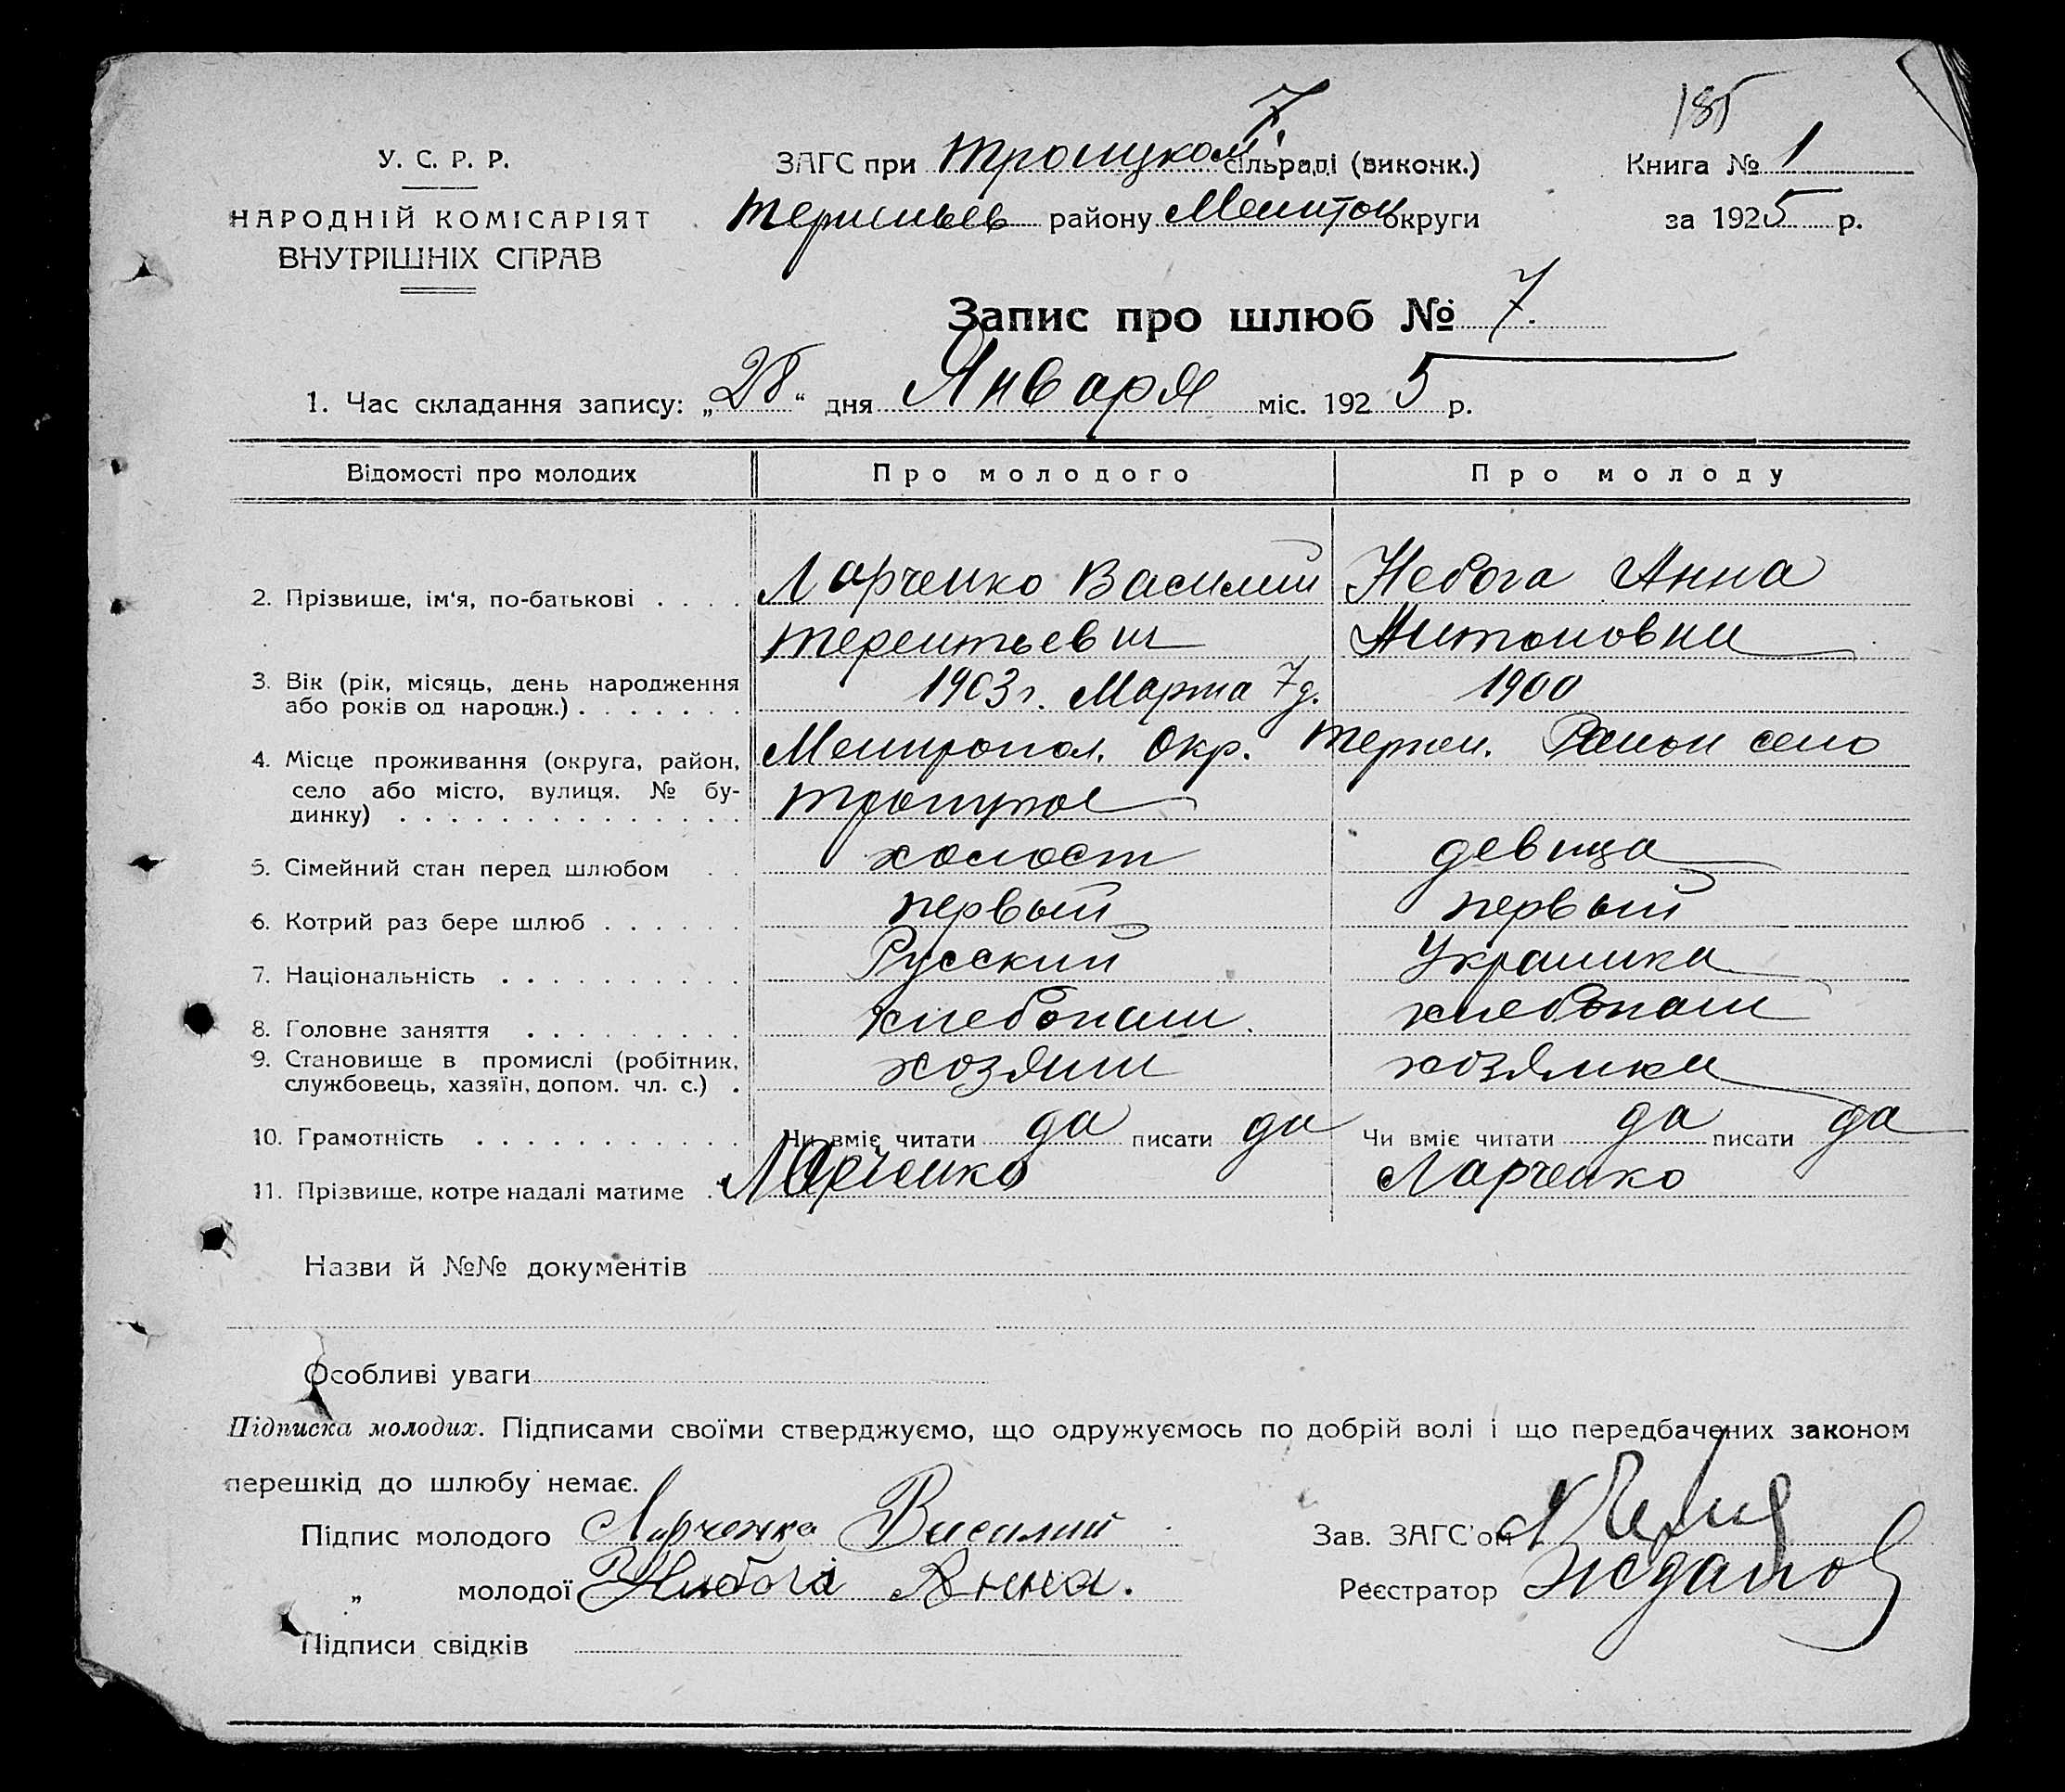 185
7
У. С. Р. Р.
ЗАГС при Троицком сільраді (виконк.)
Книга № 1
НАРОДНІЙ КОМІСАРІЯТ
ВНУТРІШНІХ СПРАВ
району Мелитоп округи
за 1925 р.
Запис про шлюб № 7.
1. Час складання запису: „28“ дня Января міс. 1925 р.
Відомості про молодих Про молодого Про молоду
2. Прізвище, ім'я, по-батькові . . . . Ларченко Василий Небога Анна
Терентьевич Антоновна
3. Вік (рік, місяць, день народження 1903 г. Марта 7 д. 1900
або років од народж.) . . . . . . .
4. Місце проживання (округа, район, Мелитопол. Окр. Район село
село або місто, вулиця. № бу- Троицкое
динку) . . . . . . . . . . . . . .
5. Сімейний стан перед шлюбом . . холост девица
6. Котрий раз бере шлюб . . . . . . первый первый
7. Національність . . . . . . . . . . Русский Украинка
8. Головне заняття . . . . . . . . . хлебопаш. хлебопаш
9. Становище в промислі (робітник, хозяин хозяйка
службовець, хазяїн, допом. чл. с.) .
10. Грамотність . . . . . . . . . . . . Чи вміє читати да писати да Чи вміє читати да писати да
11. Прізвище, котре надалі матиме . Ларченко Ларченко
Назви й №№ документів
Особливі уваги
Підписка молодих. Підписами своїми стверджуємо, що одружуємось по добрій волі і що передбачених законом
перешкід до шлюбу немає.
Підпис молодого Ларченка Василий Зав. ЗАГС'ом
„ молодої Небога Анна. Реєстратор Жданов
Підписи свідків